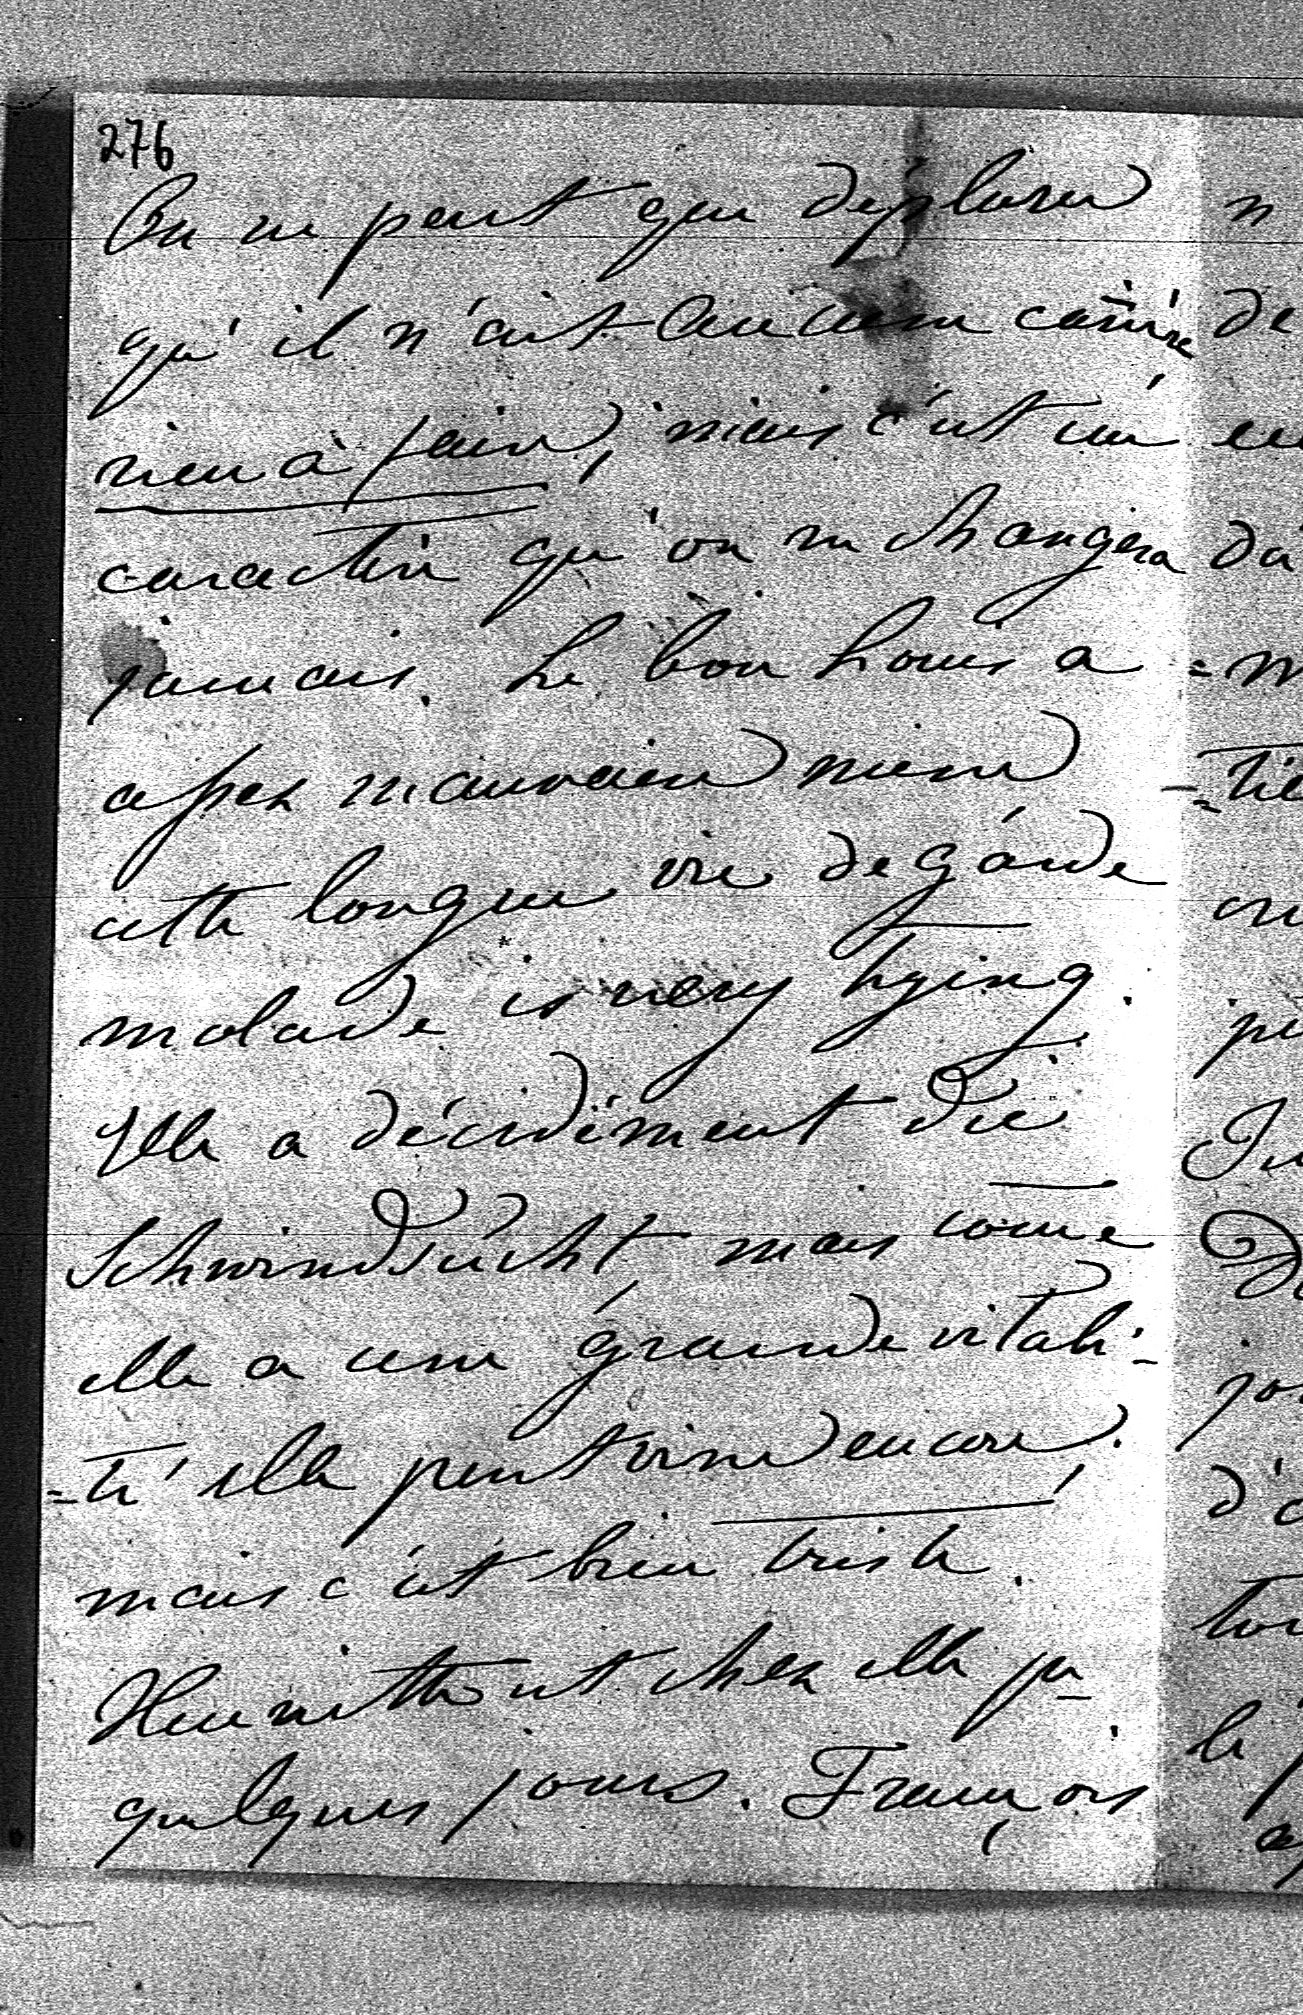 276
On ne peut que déplorer
qu'il n'ait aucune carrière
rien à faire, mais c'est un
caractère qu'on ne changera
jamais. Le bon Louis a
assez mauvaise mine
cette longue vie de gárde
malade is very trying.
Elle a décidément die
Schwindsucht, mais come
elle a une grande vitali-
=té elle peut vivre encore,
mais c'est bien triste.
Henriette est chez elle p
quelques jours. François